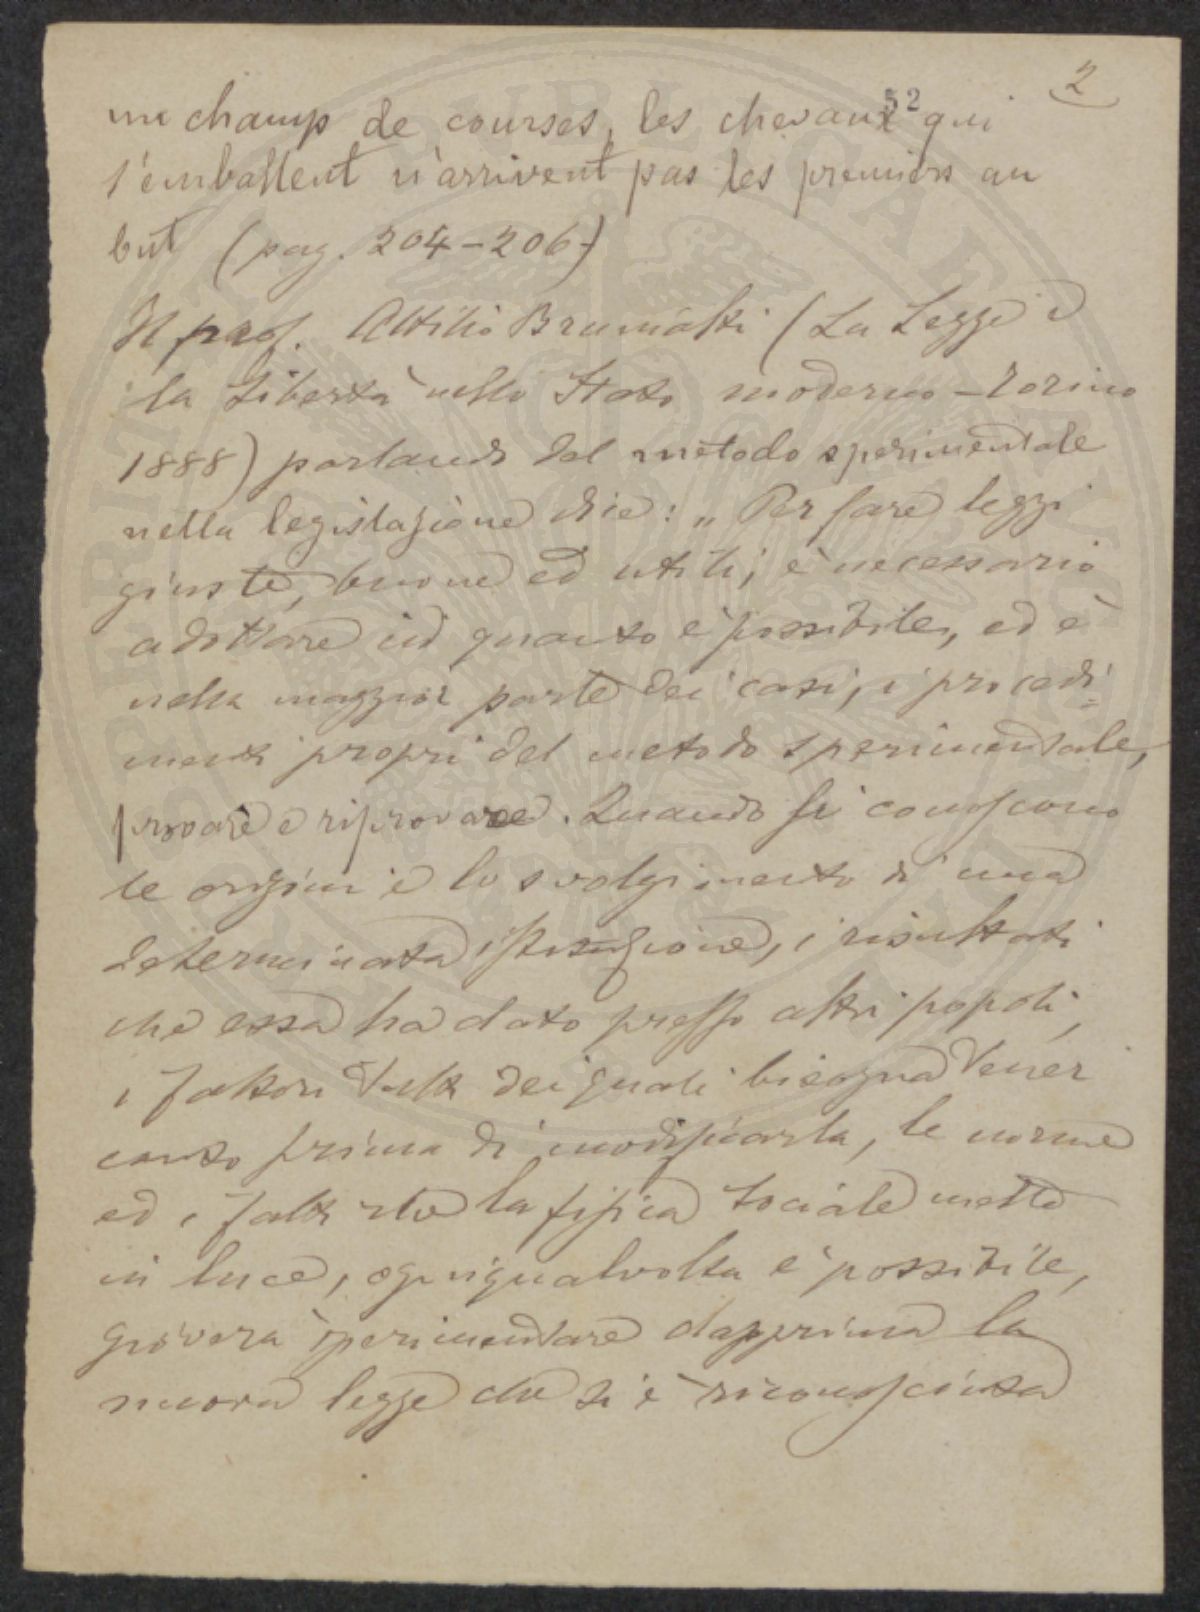 2
52
un champ de courses, les chevaux qui
s'emballent n'arrivent pas les premiers au
but (pag. 204-206)
Il prof. Attilio Brunialti (La Legge e
la Libertà nello Stato moderno - Torino
1888) parlando del metodo sperimentale
nella legislazione dice: „ Per fare leggi
giuste, buone ed utili, è necessario
adottare in quanto è possibile, ed è
nella maggior parte dei casi, i procedi=
menti propri del metodo sperimentale,
provare e riprovare. Quando si conoscono
le origini e lo svolgimento di una
determinata istituzione, i risultati
che essa ha dato presso altri popoli,
i fattori tutti dei quali bisogna tener
conto prima di modificarla, le norme
ed i fatti che la fisica sociale mette
in luce, ogniqualvolta è possibile,
gioverà sperimentare dapprima la
nuova legge che si è riconosciuta